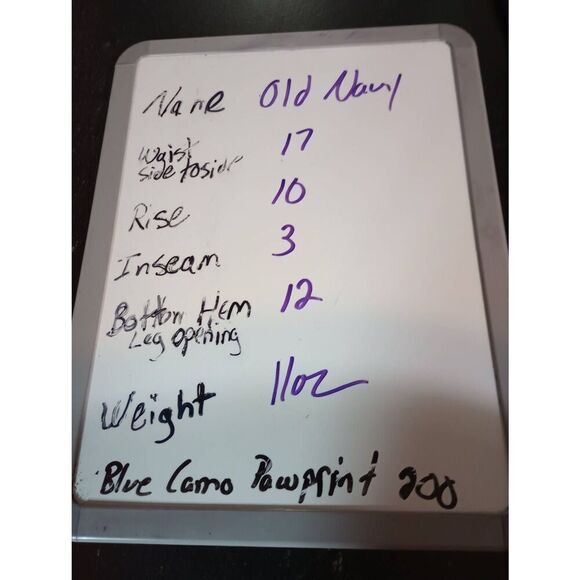 Name Old Navy
Waist 17
side to side
Rise 10
Inseam 3
Bottom Hem 12
Leg opening
Weight 11oz
Blue Camo Pawprint 200